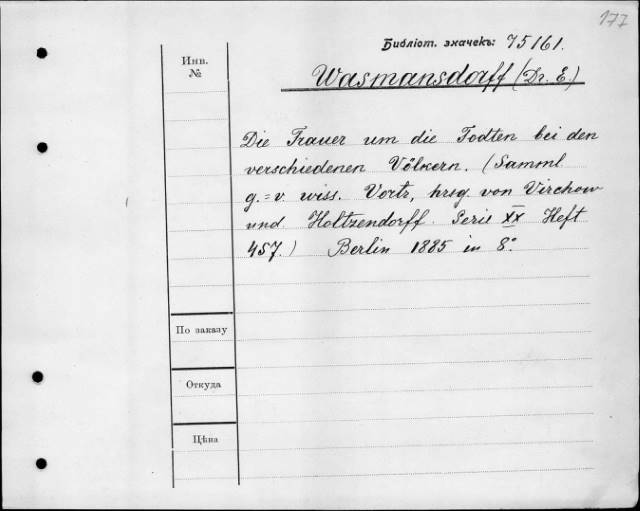 177
Библіот. значекъ: 75161.
Инв.
№
Wasmansdorff (Dr. E.)
Die Trauer um die Todten bei den
verschiedenen Völkern. (Samml
g.=v. wiss. Vortr, hrsg. von Virchow
und Holtzendorff. Serie XX Heft
457.) Berlin 1885 in 8°.
По заказу
Откуда
Цѣна